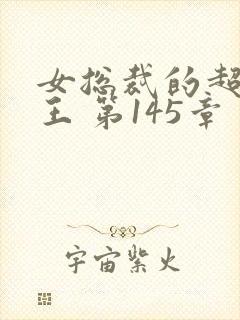 女总裁的超
王 第145章
宇宙紫火